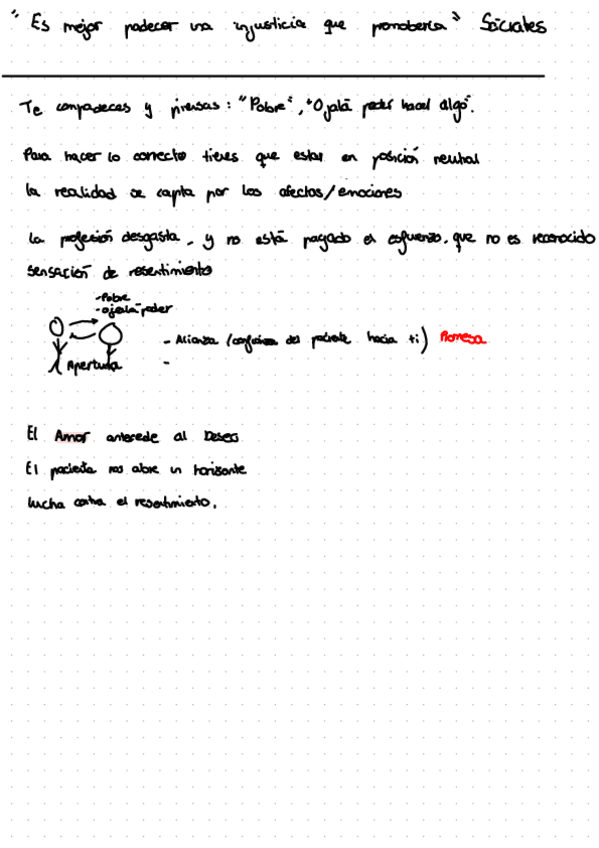 "Es mejor padecer una injusticia que promoverla" Sócrates
Te compadeces y piensas: "Pobre", "Ojalá poder hacer algo".
Para hacer lo correcto tienes que estar en posición neutral
la realidad se capta por los afectos/emociones
la profesión desgasta, y no está pagado el esfuerzo, que no es reconocido
sensación de resentimiento
-Pobre
-ojalá poder
Apertura
- Alianza (confianza del paciente hacia ti) Promesa
-
El Amor antecede al Deseo
El paciente nos abre un horizonte
lucha contra el resentimiento.